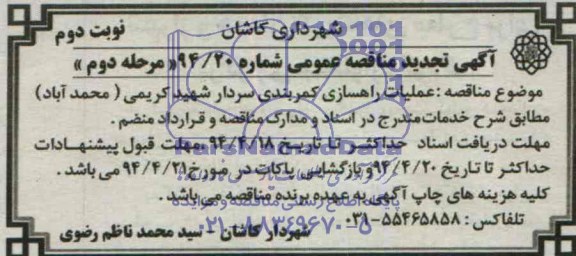 شهرداری کاشان
نوبت دوم
آگهی تجدید مناقصه عمومی شماره ۹۴/۲۰« مرحله دوم »
موضوع مناقصه : عملیات راهسازی کمربندی سردار شهید کریمی ( محمد آباد)
مطابق شرح خدمات مندرج در اسناد و مدارک مناقصه و قرارداد منضم .
مهلت دریافت اسناد حداکثر تا تاریخ ۹۴/۴/۱۸ ،مهلت قبول پیشنهادات
حداکثر تا تاریخ ۹۴/۴/۲۰ و بازگشایی پاکات در مورخ ۹۴/۴/۲۱ می باشد .
کلیه هزینه های چاپ آگهی به عهده برنده مناقصه می باشد .
تلفاکس : ۵۵۴۶۵۸۵۸-۰۳۱
شهردار کاشان - سید محمد ناظم رضوی
ParsNamadData
پایگاه اطلاع رسانی مناقصه و مزایده
۰۲۱-۸۸۳۴۹۶۷۰-۵